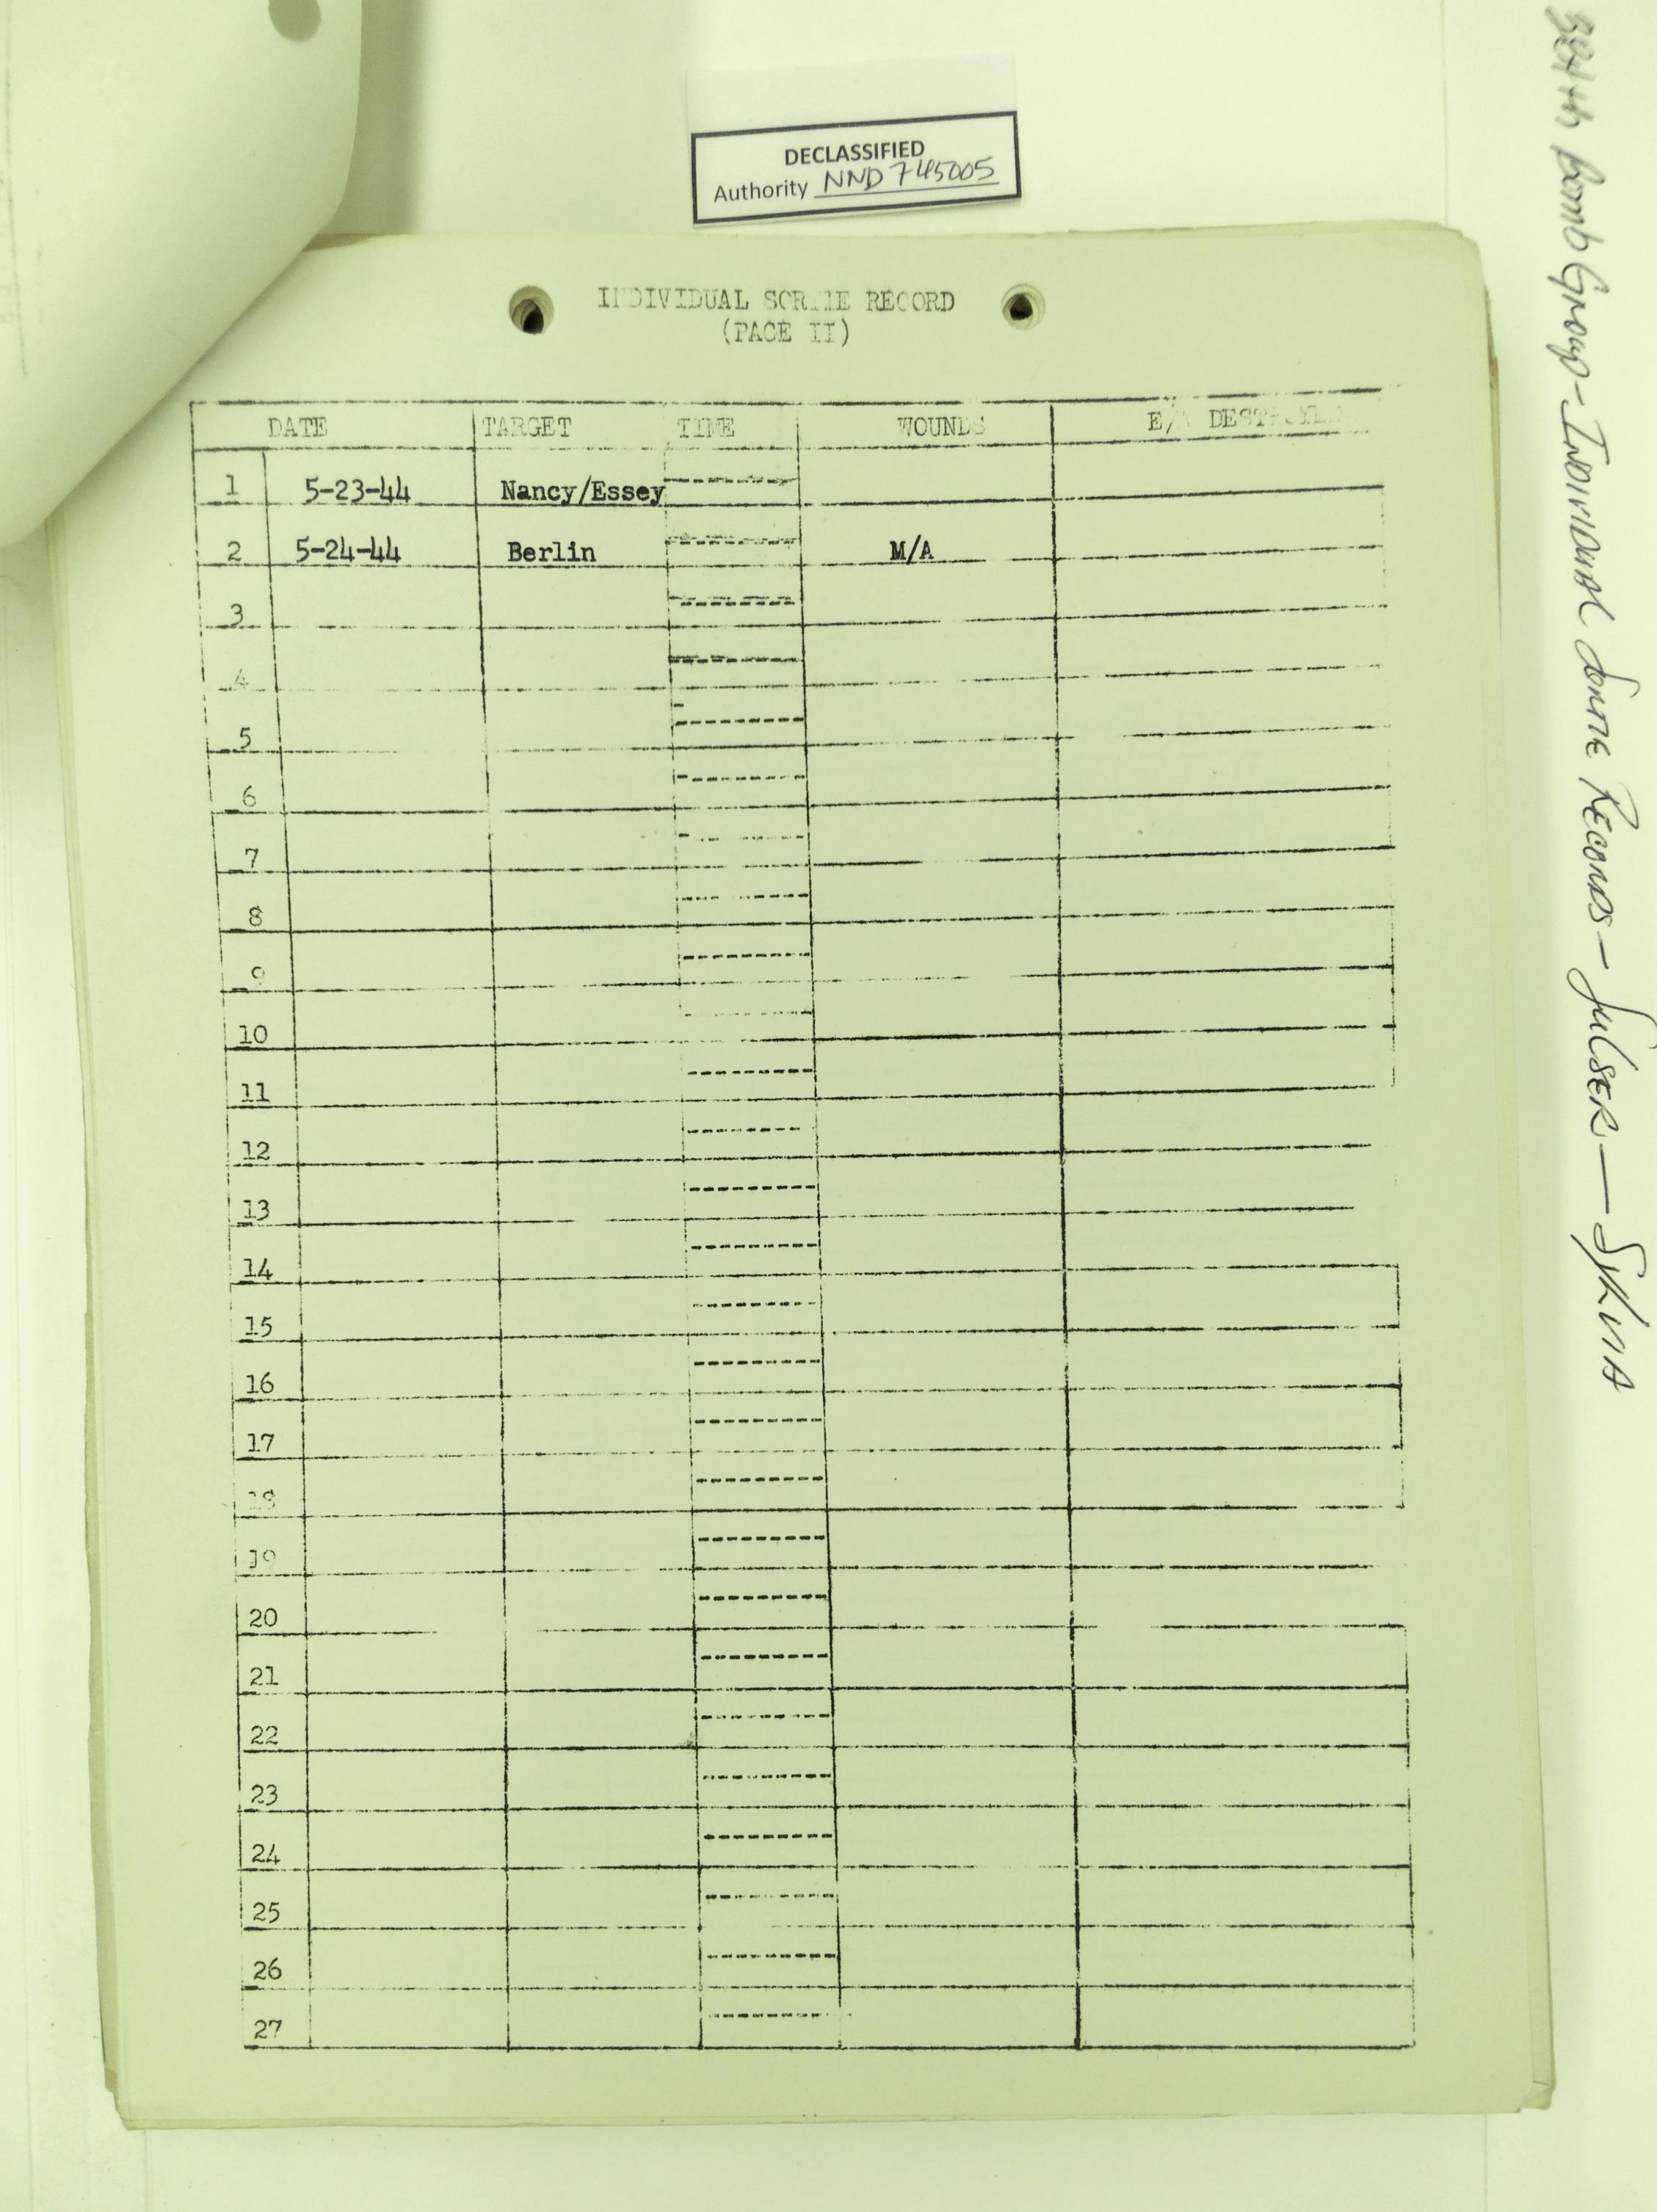 DECLASSIFIED
Authority NND 745005
INDIVIDUAL SORTIE RECORD
(PAGE II)
DATE TARGET TIME WOUNDS E/A DESTROYED
1 5-23-44 Nancy/Essey
2 5-24-44 Berlin M/A
3
4
5
6
7
8
9
10
11
12
13
14
15
16
17
18
19
20
21
22
23
24
25
26
27
384th Bomb Group - Individual Sortie Records - Sulser — Sykna